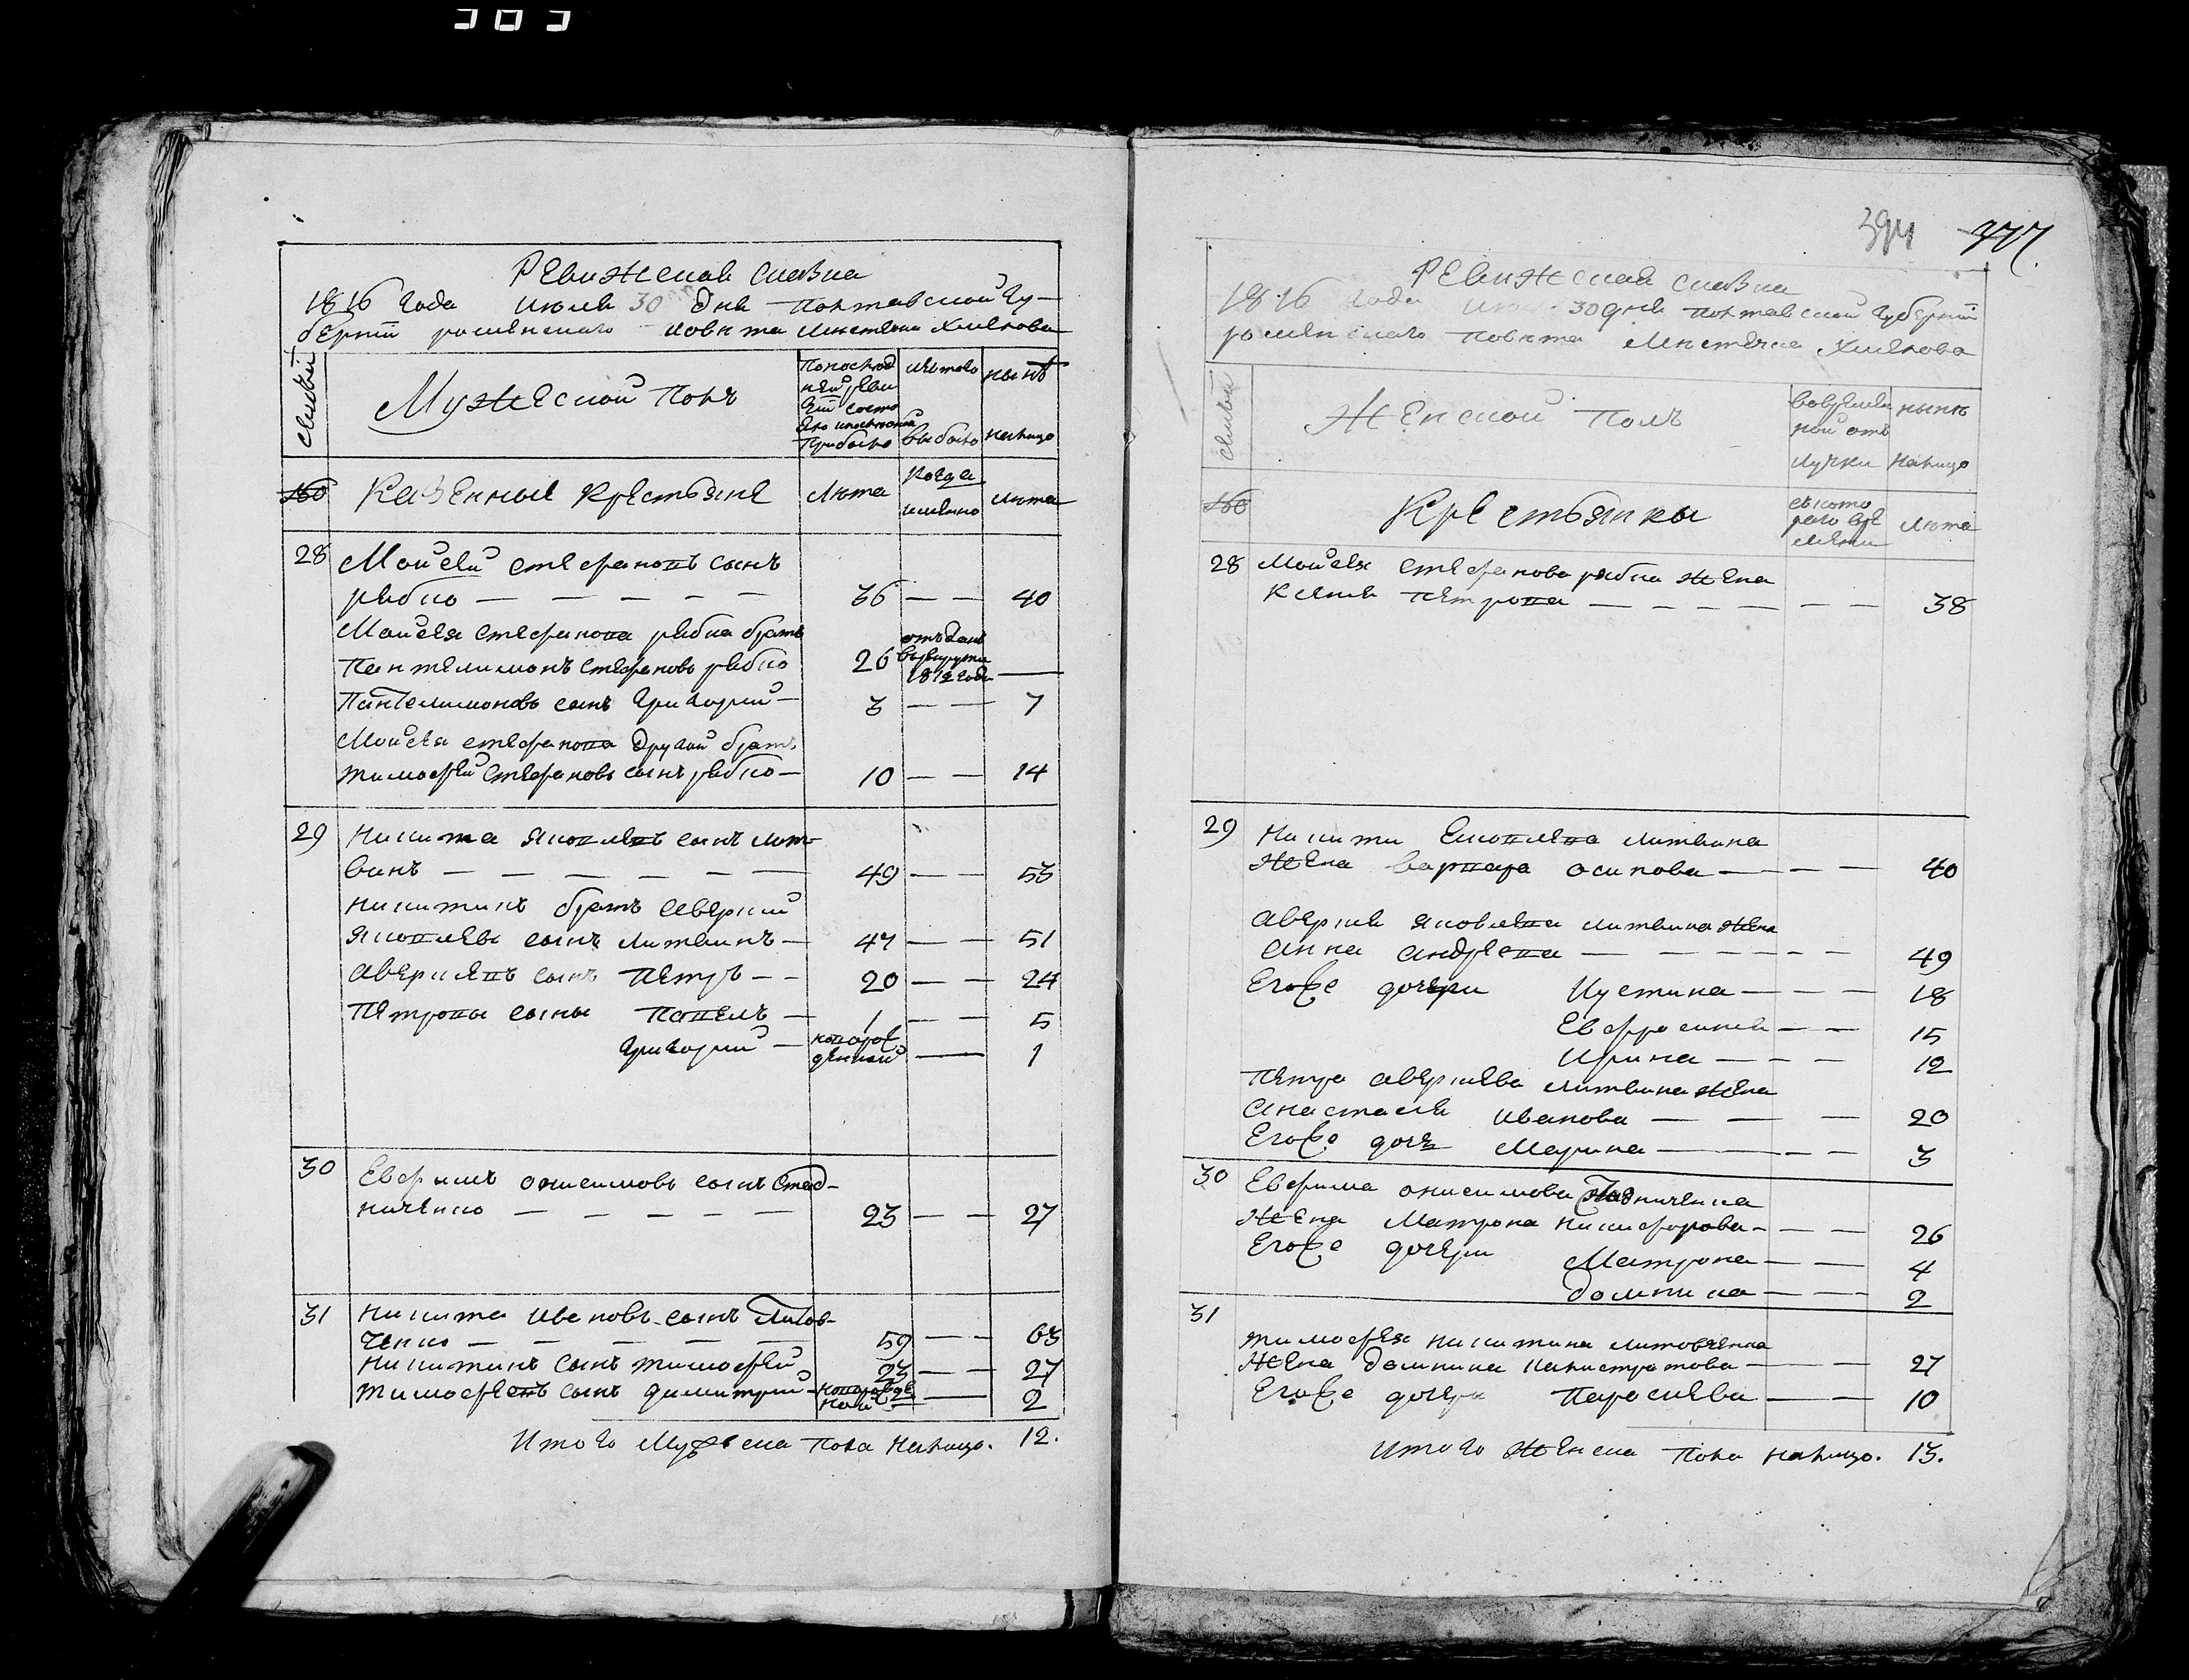 Ревижская сказка
1816 Года июля 30 Дня Полтавской Гу-
берніи роменскаго Повѣта Мѣстечка Хмелова
семьи
Мужеской Полъ
По послѣд
ней реви
зіи состо
яло и послѣ того
Прибыло
изъ того
выбыло
нынѣ
налицо
160
Казенные Крестьяне
Лѣта
Когда
именно
лѣта
28 Моисей стефановъ сынъ
рябко — — — — — 36 — — 40
Моисея стефанова рябка братъ
Пантелимонъ стефановъ рябко 26 отъданъ
въ рекруты
1812 года —
Пантелимоновъ сынъ Григорий — 3 — — 7
Моисея стефанова другий братъ
тимофей стефановъ сынъ рябко — 10 — — 14
29 Никита яковлевъ сынъ лит-
винъ — — — — — — 49 — — 53
никитинъ братъ аверкий
яковлевъ сынъ литвинъ — 47 — — 51
аверкиевъ сынъ Петръ — — 20 — — 24
Петровы сыны Павелъ — 1 — — 5
Григорий — новорож
денный — 1
30 Евфимъ онисимовъ сынъ стад-
ниченко — — — — — 23 — — 27
31 никита ивановъ сынъ Литов-
ченко — — — — — 59 — — 63
никитинъ сынъ тимофей 23 — — 27
тимофеевъ сынъ димитрий — новорожде
ной — 2
Итого Мужеска Пола налицо. 12.
394 377
Ревижская сказка
1816 Года июля 30 дня Полтавской Губерніи
роменскаго Повѣта Мѣстечка Хмелова
семьи
Женской Полъ
во времен
ной отъ
лучки
нынѣ
налицо
160
Крестьянки
съ кото
раго вре
мени
лѣта
28 Моисея стефанова рябка жена
Ксения Петрова — — — — — — 38
29 Никити Яковлева литвина
жена варвара осипова — — — — 40
аверкия яковлева литвина жена
анна андреева — — — — — — 49
Егоже дочери Иустина — — — 18
Евфросиния — — 15
Ирина — — — 12
Петра аверкиева литвина жена
анастасия иванова — — — 20
Егоже дочь Марина — — — — 3
30 Евфима онисимова стадниченка
жена Матрона никифорова — — — 26
Егоже дочери Матрона — — 4
домникиа — — — 2
31
тимофея никитина литовченка
жена домникиа калистратова — — — 27
Егоже дочери Параскева — — 10
Итого женска Пола налицо. 13.